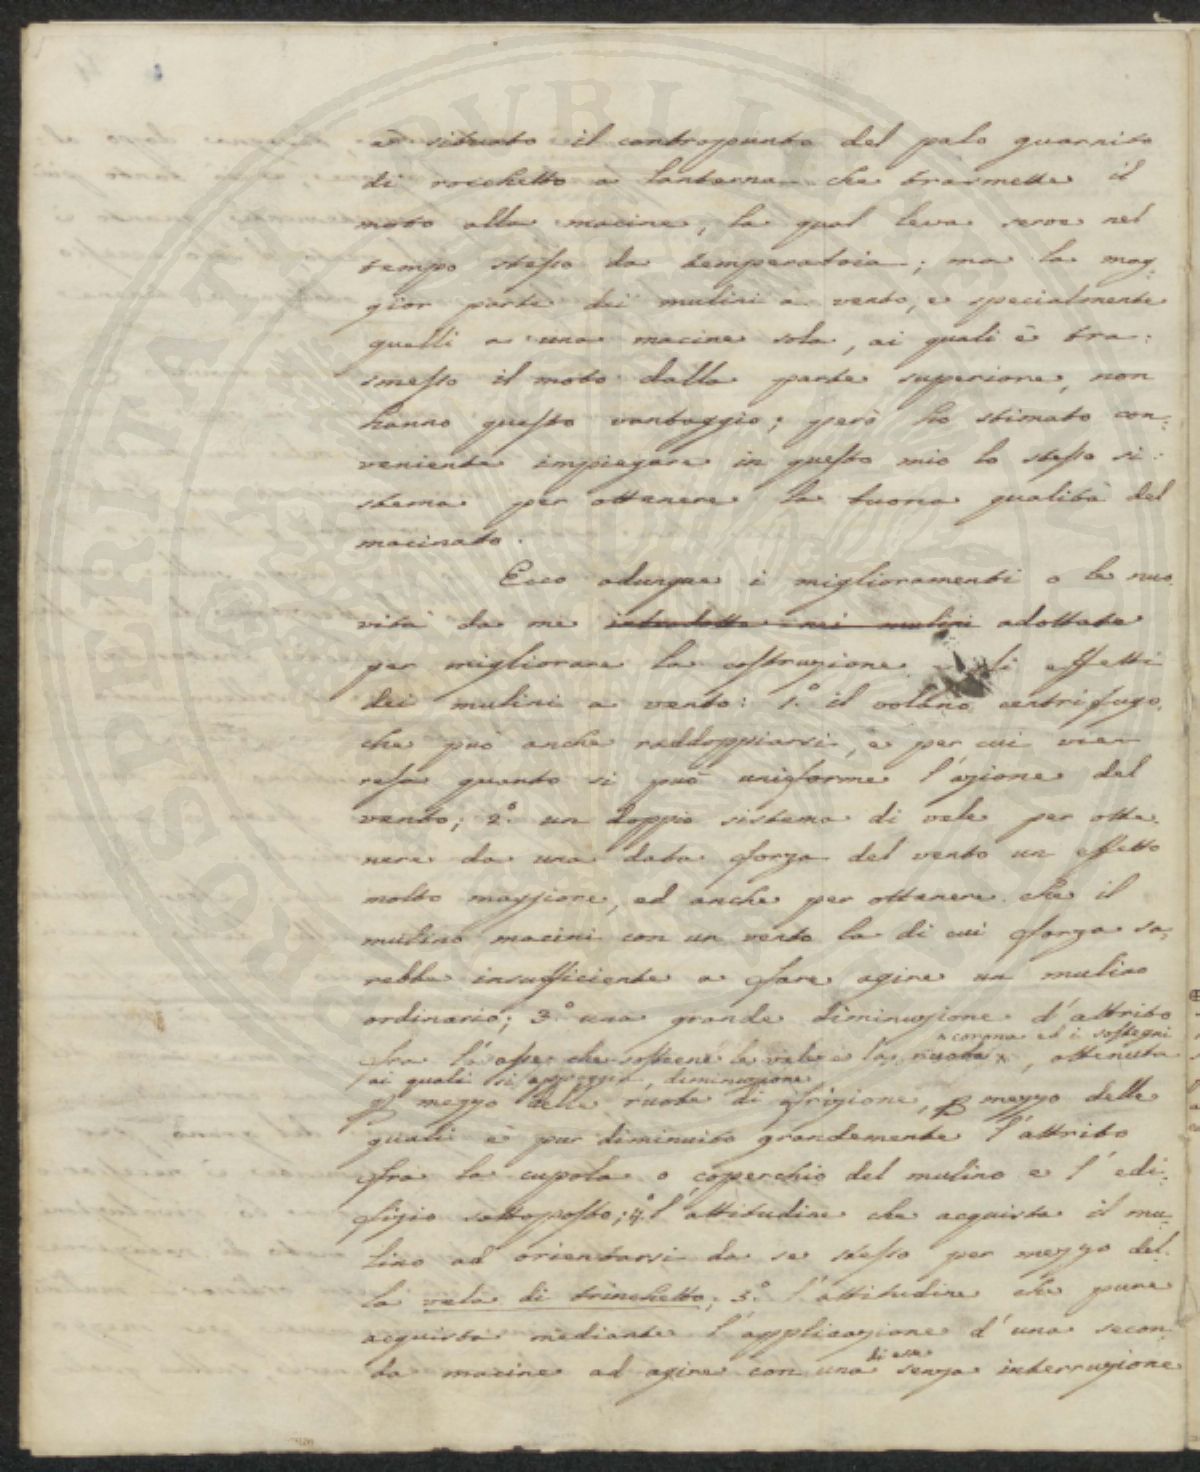 è situato il contropunto del palo guarnito
di rocchetto a lanterna che trasmette il
moto alla macine, la qual leva serve nel
tempo stesso da temperatoia; ma la mag-
gior parte dei mulini a vento, e specialmente
quelli a una macine sola, ai quali è tra-
smesso il moto dalla parte superiore, non
hanno questo vantaggio; però ho stimato con-
veniente impiegare in questo mio lo stesso si-
stema per ottenere la buona qualità del
macinato.
Ecco adunque i miglioramenti o le nuo-
vità da me introdotte nei mulini adottate
per migliorare la costruzione gli effetti
dei mulini a vento: 1.° il volano centrifugo,
che può anche raddoppiarsi, e per cui vien
resa quanto si può uniforme l'azione del
vento; 2.° un doppio sistema di vele per otte-
nere da una data forza del vento un effetto
molto maggiore, ed anche per ottenere che il
mulino macini con un vento la di cui forza sa-
rebbe insufficiente a fare agire un mulino
ordinario; 3.° una grande diminuzione d'attrito
x corona ed i sostegni
fra l'asse che sostiene le vele e la ruota x, ottenuta
ai quali si appoggia, diminuzione
p mezzo delle ruote di frizione, p mezzo delle
quali è pur diminuito grandemente l'attrito
fra la cupola o coperchio del mulino e l'edi-
fizio sottoposto; 4.° l'attitudine che acquista il mu-
lino ad orientarsi da se stesso per mezzo del-
la vela di trinchetto; 5.° l'attitudine che pure
acquista mediante l'applicazione d'una secon-
di esse
da macine ad agire con una senza interruzione